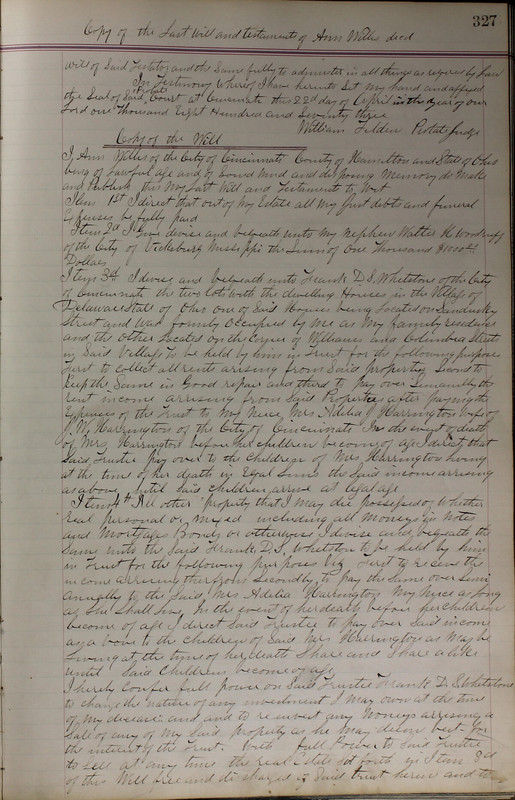 327
Copy of the Last Will and testament of Ann Willis decd
Will of Said Testator and the Same fully to administer in all things as required by Law
In Testimony Whereof I have hereunto Set my hand and affixed
the Seal of Said Probate Court at Cincinnati this 22d day of April in the year of our
Lord one Thousand Eight Hundred and Seventy three
William Tilden Probate Judge
Copy of the Will
I, Ann Willis of the City of Cincinnati County of Hamilton and State of Ohio
being of Lawful age and of Sound Mind and disposing Memory do Make
and Publish this My Last Will and Testament to Wit
Item 1st I direct that out of My Estate all My Just debts and funeral
Expenses be fully paid
Item 2d I give devise and bequeath unto My Nephew Walter H. Woodruff
of the City of Vicksburg Mississippi the Sum of One Thousand
Dollars
Item 3d I devise and bequeath unto Frank D.S. Whetstone of the City
of Cincinnati the two Lots with the dwelling Houses in the Village of
Delaware State of Ohio one of Said Houses being Located on Sandusky
Street and was formerly Occupied by Me as My family residence
and the other Located on the Corner of William and Columbus Streets
in Said Village to be held by him in Trust for the following purposes
First to Collect all rents arising from Said property Second to
Keep the Same in Good repair and third to pay over Semannually the
rent income arising from Said Properties after paying the
Expenses of the Trust to My Neice Mrs Adelia J Harrington Wife of
J. W. Harrington of the City of Cincinnati In the event of death
of Mrs Harrington before her children become of age I direct that
Said Trustee pay over to the Children of Mrs Harrington living
at the time of her death in Equal Sums the Said income arising
as above until Said children arrive at legal age
Item 4th All other property that I May die possessed of Whether
Real personal or Mixed including all Moneys in Notes
and Mortgage Bonds or otherwise I devise and bequeath the
Same unto the Said Frank D.S. Whetstone to be held by him
in Trust for the following purposes Viz First to receive the
income arriving therefrom Secondly to pay the Same over Semi
Annually to the Said Mrs Adelia Harrington My Neice as long
as She Shall live In the event of her death before her children
become of age I direct Said Trustee to pay over Said income
as above to the Children of Said Mrs Harrington as May be
living at the time of her death Share and Share alike
until Said Children become of age
I hereby Confer full power on Said Trustee Frank D.S. Whetstone
to change the nature of any investment I may own at the time
of my disease and to reinvest any Moneys arising
Sale of any of My Said property as he May deem best for
the interest of the Trust. With full Power to Said Trustee
to Sell at any time the real Estate Set forth in Item 3d
of this Will free and discharged of Said trust herein and